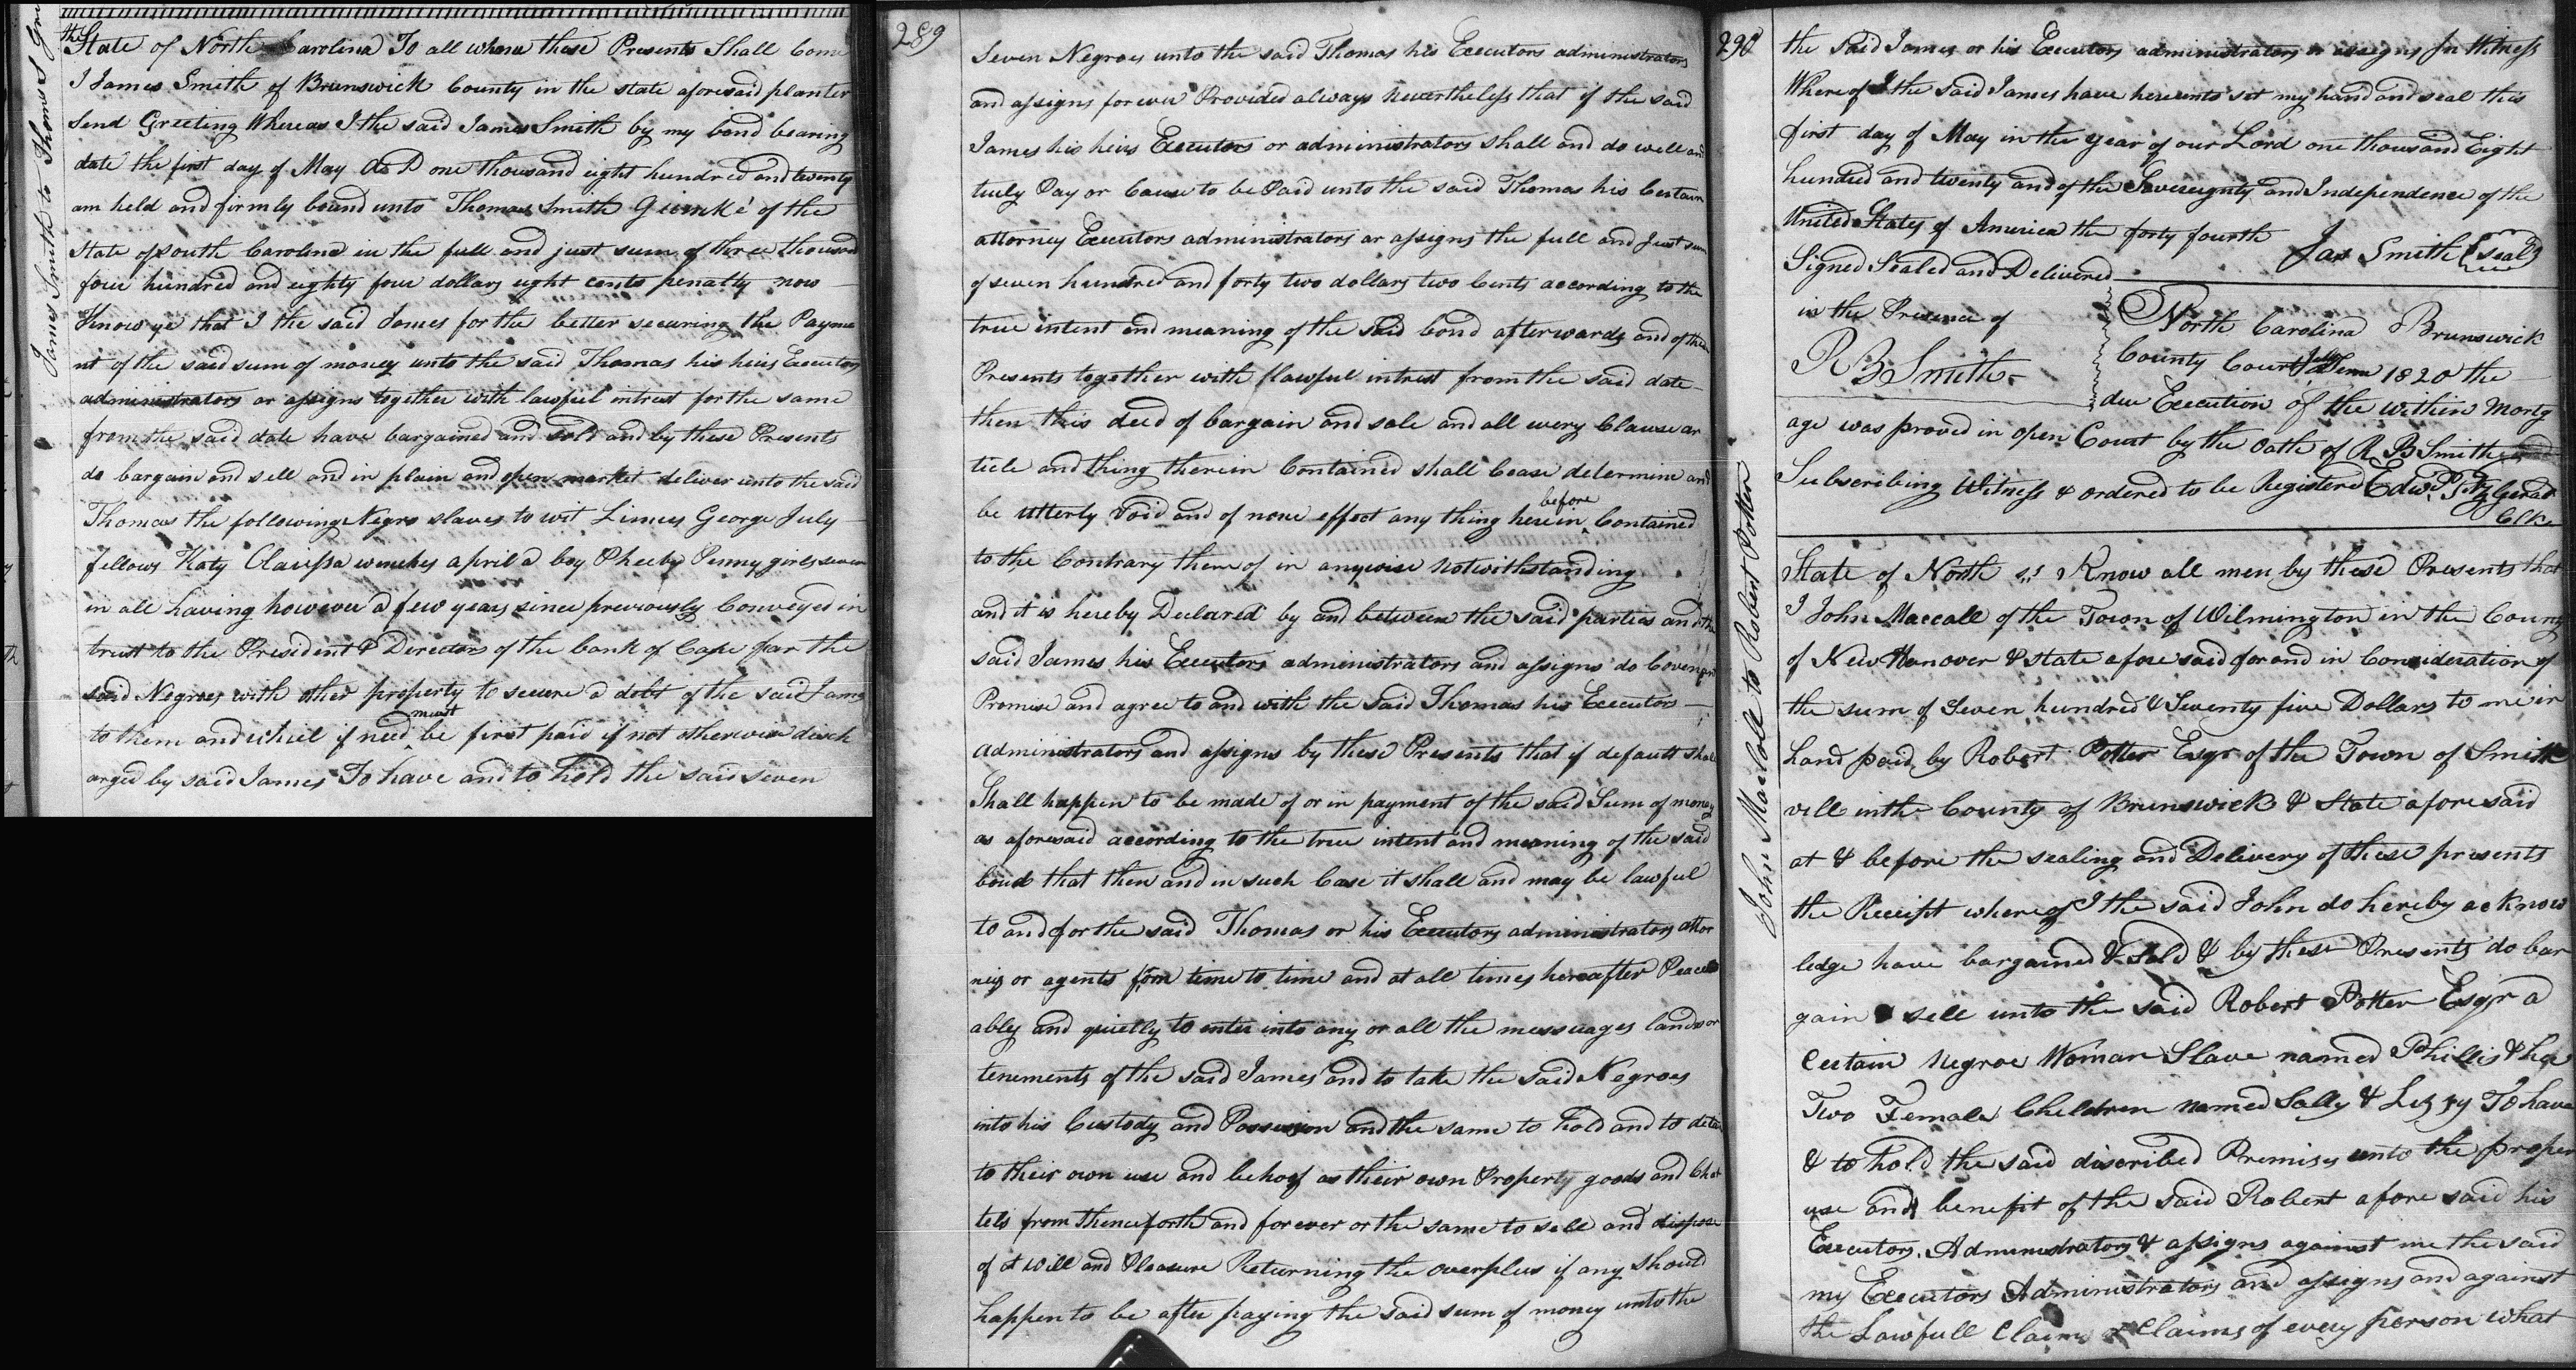 James Smith to Thomas S Gri
State of North Carolina To all whom these Presents Shall Come
I James Smith of Brunswick County in the state aforesaid planter
Send Greeting Whereas I the said James Smith by my bond bearing
date the first day of May A D one thousand eight hundred and twenty
am held and firmly bound unto Thomas Smith Grimké of the
State of South Carolina in the full and just sum of three thousand
four hundred and eighty four dollars eight cents penalty now
Know ye that I the said James for the better securing the Payme
nt of the said sum of money unto the said Thomas his heirs Executors
administrators or assigns together with lawful intrest for the same
from the said date have bargained and sold and by these Presents
do bargain and sell and in plain and open market deliver unto the said
Thomas the following Negro slaves to wit Limus George July
fellows Katy Clarissa wenches april a boy Pheeby Penny girls seven
in all having however a few years since previously Conveyed in
trust to the President & Directors of the bank of Cape fear the
said Negroes with other property to secure a debt of the said James
to them and which if need must be first paid if not otherwise disch
arged by said James To have and to hold the said seven
289
Seven Negroes unto the said Thomas his Executors administrators
and assigns forever Provided always nevertheless that if the said
James his heirs Executors or administrators shall and do well and
truly Pay or Cause to be Paid unto the said Thomas his Certain
attorney Executors administrators or assigns the full and Just sum
of seven hundred and forty two dollars two Cents according to the
true intent and meaning of the said bond afterwards and of these
Presents together with lawful intrest from the said date
then this deed of bargain and sale and all every Clause ar
ticle and thing therein Contained shall Cease determine and
be utterly Void and of none effect any thing herein before Contained
to the Contrary thereof in anywise notwithstanding
and it is hereby Declared by and between the said parties and the
said James his Executors administrators and assigns do Covenant
Promise and agree to and with the said Thomas his Executors
administrators and assigns by these Presents that if default shall
Shall happen to be made of or in payment of the said Sum of money
as aforesaid according to the true intent and meaning of the said
bond that then and in such Case it shall and may be lawful
to and for the said Thomas or his Executors administrators attor
nies or agents from time to time and at all times hereafter Peace
ably and quietly to enter into any or all the messuages lands or
tenements of the said James and to take the said Negroes
into his Custody and Possession and the same to hold and to detain
to their own use and behoof as their own Property goods and Chat
tels from thenceforth and forever or the same to sell and dispose
of at Will and Pleasure Returning the overplus if any should
happen to be after paying the said sum of money unto the
290
the said James or his Executors administrators or assigns In Witness
Whereof I the said James have hereunto set my hand and seal this
first day of May in the year of our Lord one thousand Eight
hundred and twenty and of the Sovereignty and Independence of the
United States of America the forty fourth
Jas Smith (seal)
Signed Sealed and Delivered
in the Presence of
R B Smith
North Carolina Brunswick
County Court July Term 1820 the
due Execution of the within Mortg
age was proved in open Court by the Oath of R B Smith
Subscribing Witness & ordered to be Registered Edwd. Fitzgerald
Clk
John Maccoll to Robert Potter
State of North Know all men by these Presents that
I John Maccoll of the Town of Wilmington in the County
of New Hanover & state afore said for and in Consideration of
the sum of Seven hundred & Seventy five Dollars to me in
hand paid by Robert Potter Esqr of the Town of Smith
vill in the County of Brunswick & State afore said
at & before the sealing and Delivery of these presents
the Receipt whereof I the said John do hereby acknow
ledge have bargained & Sold & by these Presents do bar
gain sell unto the said Robert Potter Esqr a
Certain Negroe Woman Slave named Phillis & her
Two Female Children named Sally & Lizzy To have
& to hold the said discribed Premises unto the proper
use and benefit of the said Robert afore said his
Executors, Administrators & assigns against me the said
my Executors Administrators and assigns and against
the Lawfull Claim or Claims of every person what